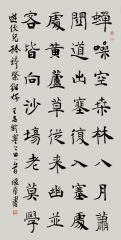 蟬噪空桑林八月蕭
關道出塞復入塞處
處黃蘆草從來幽并
客皆向沙場老莫學
遊俠兒矜誇紫騮好 王昌齡 書